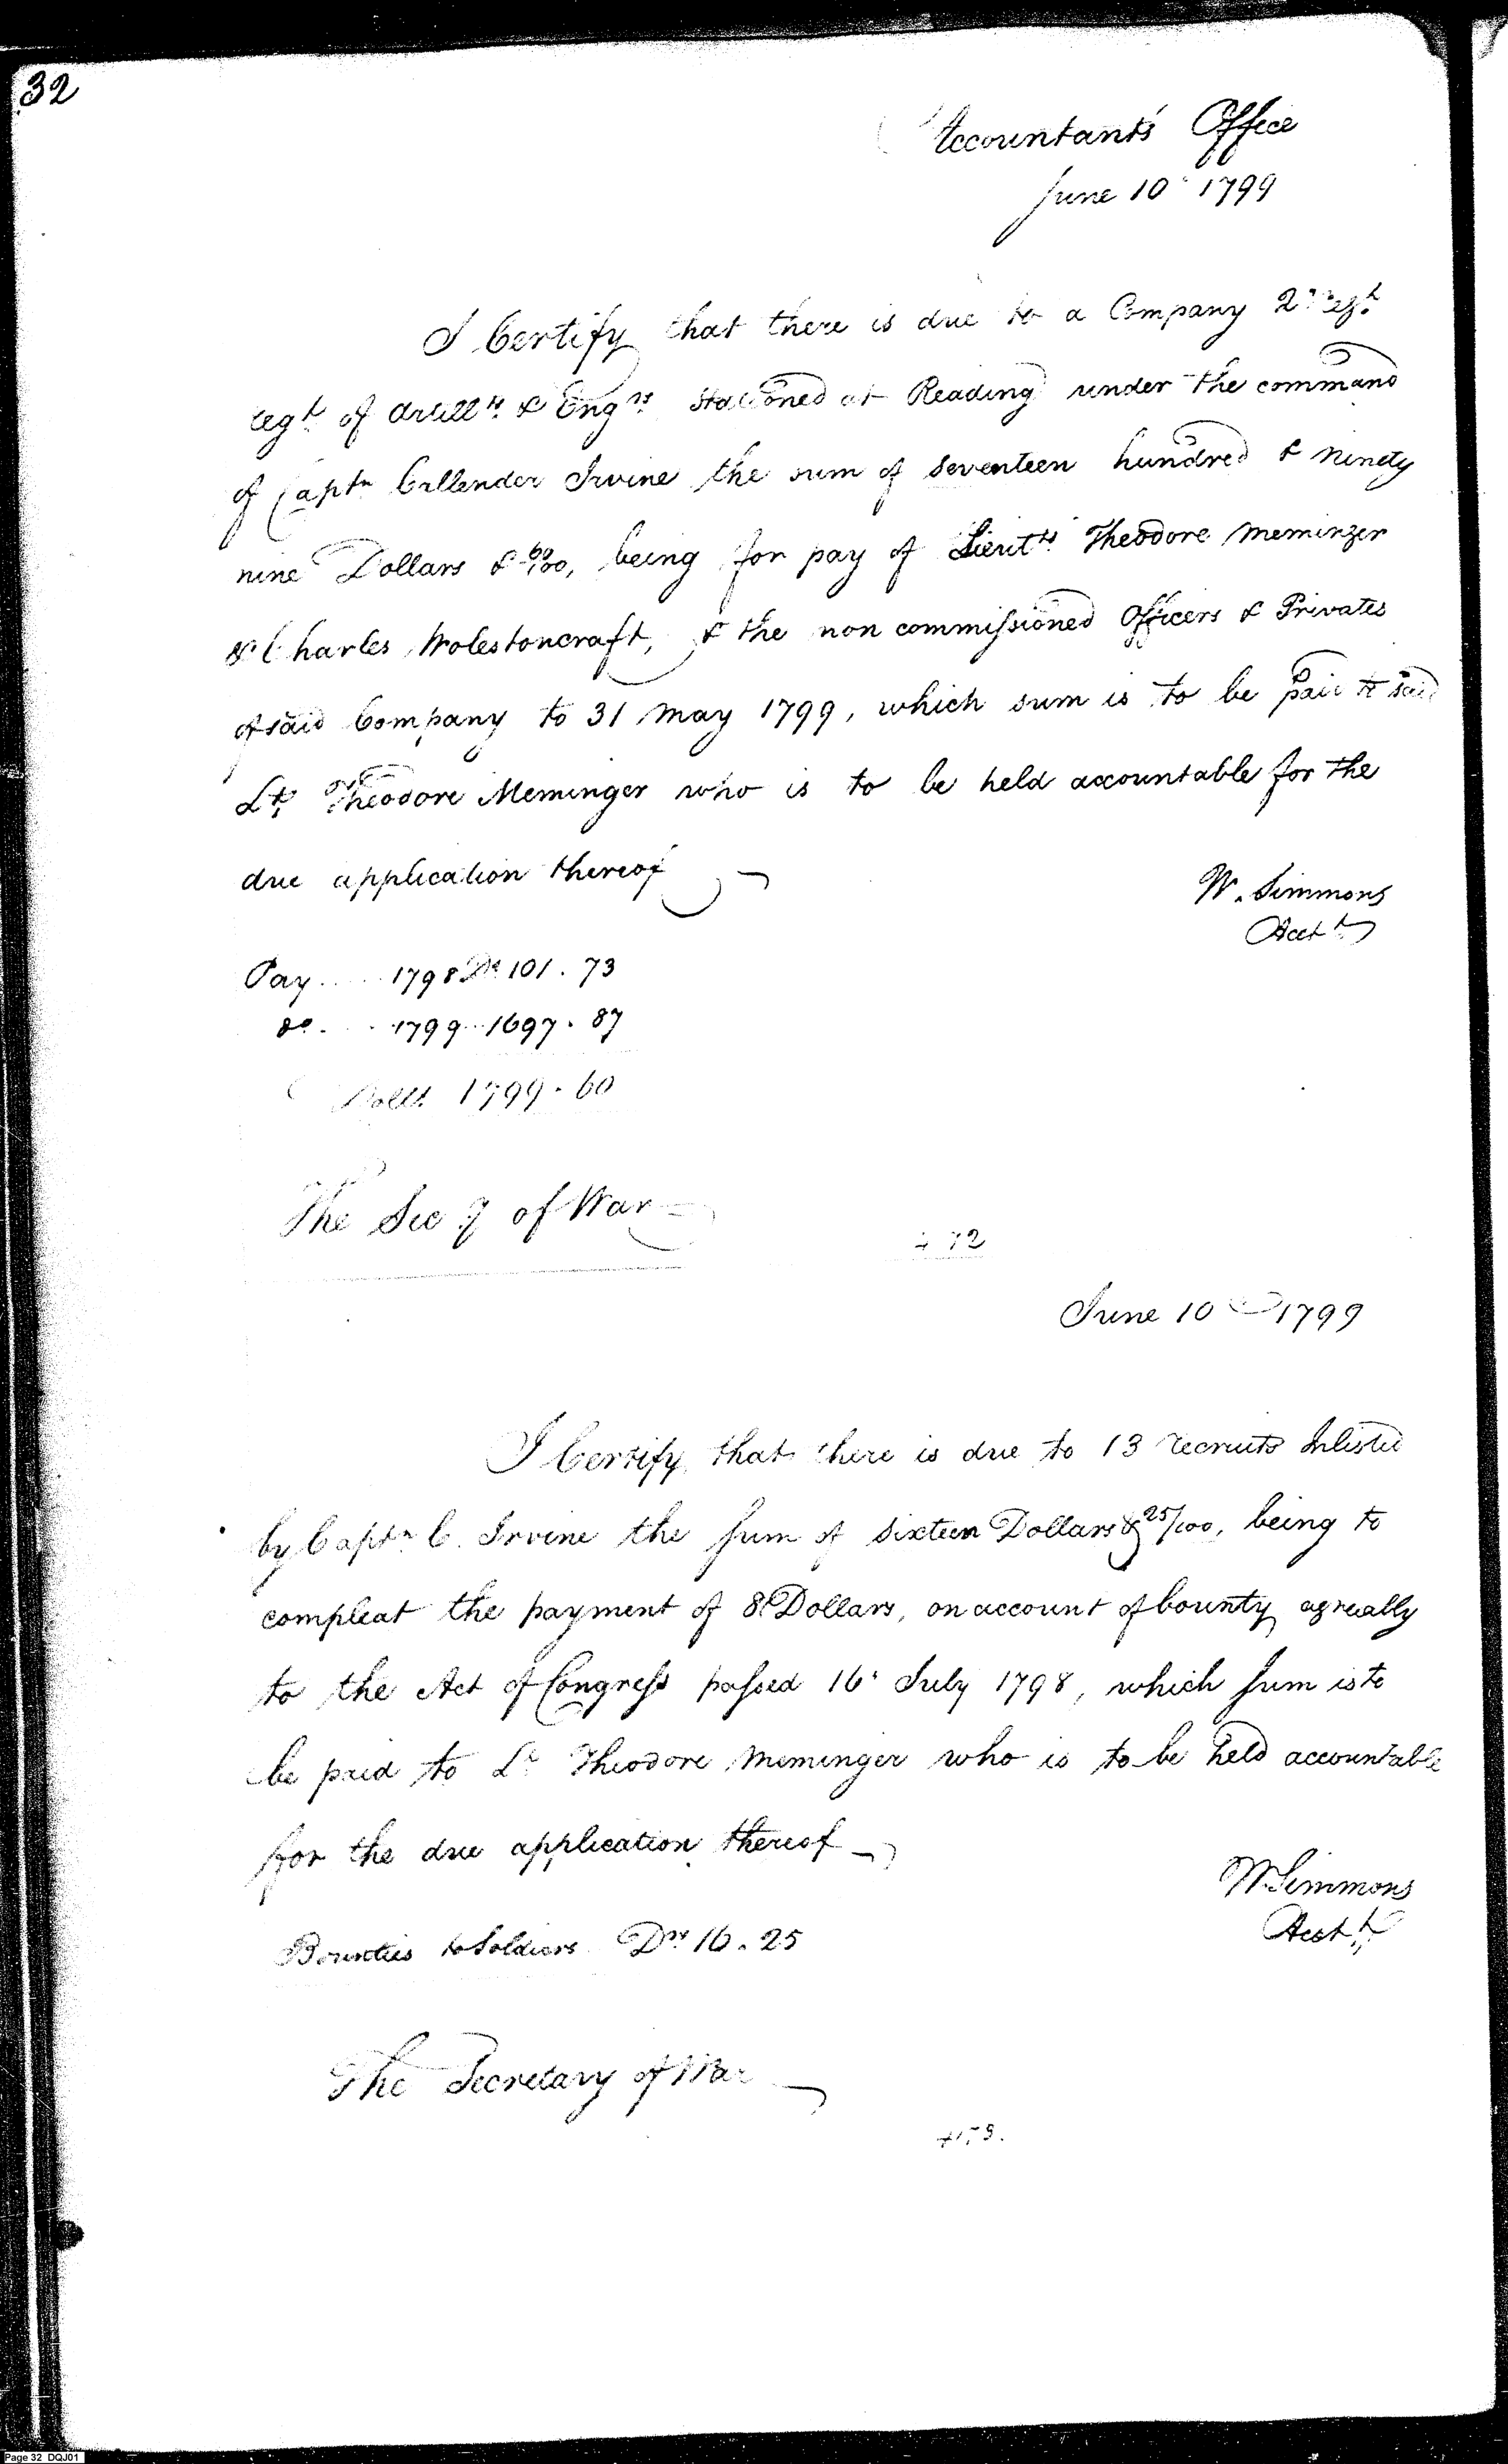 32
Accountants Office
June 10 1799
I Certify that there is due to a Company 2d Regt
regt of Artillts & Engrs stationed at Reading under the command
of Captn Callender Irvine the sum of seventeen hundred & ninety
nine Dollars & 60/100, being for pay of Lieutts Theodore Meminger
& Charles Wolestoncraft, & the non commissioned Officers & Privates
of said Company to 31 May 1799, which sum is to be paid to said
Lt Theodore Meminger who is to be held accountable for the
due application thereof
W. Simmons
Acct
Pay .... 1798 Ds 101.73
do. ... 1799 .. 1697.87
Dolls. 1799.60
The Secy of War
472
June 10 1799
I Certify that there is due to 13 recruits Inlisted
by Captn C. Irvine the sum of sixteen Dollars & 25/100, being to
compleat the payment of 8 Dollars, on account of bounty agreeably
to the Act of Congress passed 16 July 1798, which sum is to
be paid to Lt Theodore Meminger who is to be held accountable
for the due application thereof
W. Simmons
Acct
Bounties to Soldiers Drs 16.25
The Secretary of War
473.
Page 32 DQJ01